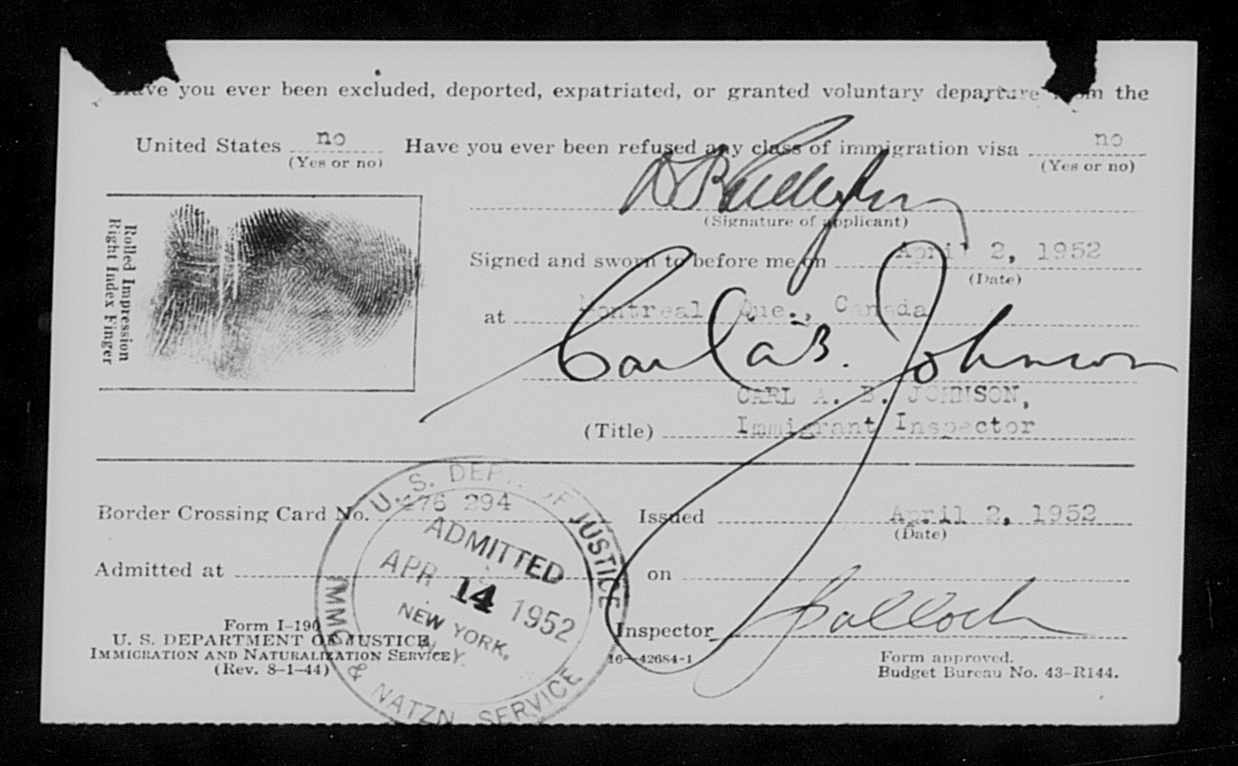 Have you ever been excluded, deported, expatriated, or granted voluntary departure from the
United States no Have you ever been refused any class of immigration visa no
(Yes or no) (Yes or no)
Rolled Impression
Right Index Finger
(Signature of applicant)
Signed and sworn to before me on April 2, 1952
(Date)
at Montreal Que., Canada
Carl A. B. Johnson
CARL A. B. JOHNSON,
(Title) Immigrant Inspector
Border Crossing Card No. 276 294 Issued April 2, 1952
(Date)
Admitted at on
U. S. DEPT. OF JUSTICE
ADMITTED
APR 14 1952
NEW YORK,
N. Y.
IMMG. & NATZN. SERVICE
Inspector
Form I-190
U. S. DEPARTMENT OF JUSTICE
IMMIGRATION AND NATURALIZATION SERVICE
(Rev. 8-1-44)
16—42684-1
Form approved.
Budget Bureau No. 43-R144.